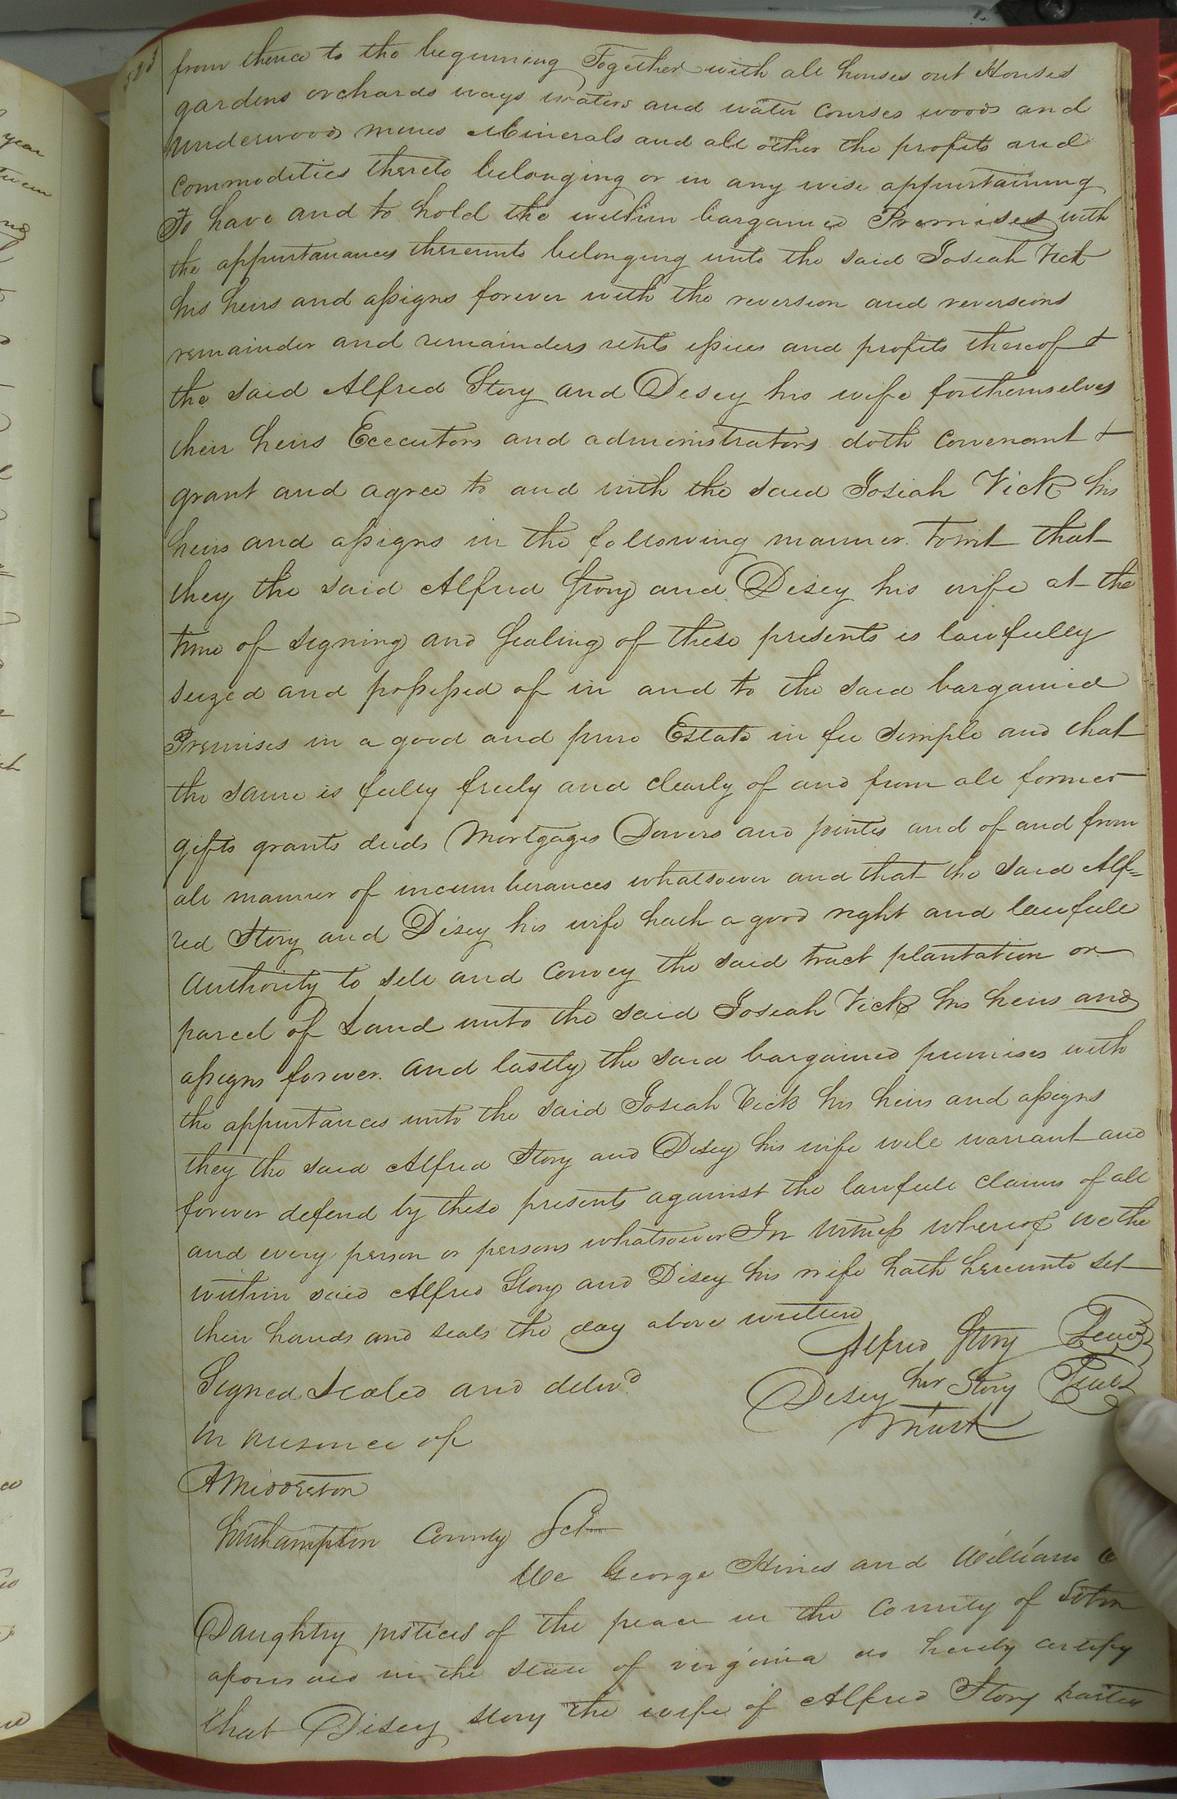 from thence to the beginning Together with all houses out Houses
gardens orchards ways waters and water courses woods and
Underwoods mines Minerals and all other the profits and
Commodities thereto belonging or in any wise appurtaining
To have and to hold the within bargained Premises with
the appurtanances thereunto belonging unto the said Josiah Vick
his heirs and assigns forever with the reversion and reversions
remainder and remainders rents issues and profits thereof &
the said Alfred Story and Disey his wife forthemselves
their heirs Executors and administrators doth Covenant &
grant and agree to and with the said Josiah Vick his
heirs and assigns in the following manner Towit that
they the said Alfred Story and Disey his wife at the
time of signing and Sealing of these presents is lawfully
seized and possessed of in and to the said bargained
Premises in a good and pure Estate in fee simple and that
the same is fully freely and clearly of and from all former
gifts grants deeds Mortgages Dowers and jointes and of and from
all manner of incumberances whatsoever and that the said Alf=
red Story and Disey his wife hath a good right and lawfull
authority to sell and convey the said tract plantation or
parcel of Land unto the said Josiah Vick his heirs and
assigns forever. and lastly the said bargained premises with
the appurtances unto the said Josiah Vick his heirs and assigns
they the said Alfred Story and Disey his wife will warrant and
forever defend by these presents against the lawfull claims of all
and every person or persons whatsoever In Witness whereof we the
within said Alfred Story and Disey his wife hath hereunto set
their hands and seals the day above written
Alfred Story Seal
Signed Sealed and deliv.d
Disey her Story Seal
Mark
in presence of
A Middleton
Southampton County Sct
We George Hines and William
Daughtry justices of the peace in the County of Soton
aforesaid in the state of virginia do hereby certify
that Disey Story the wife of Alfred Story parties